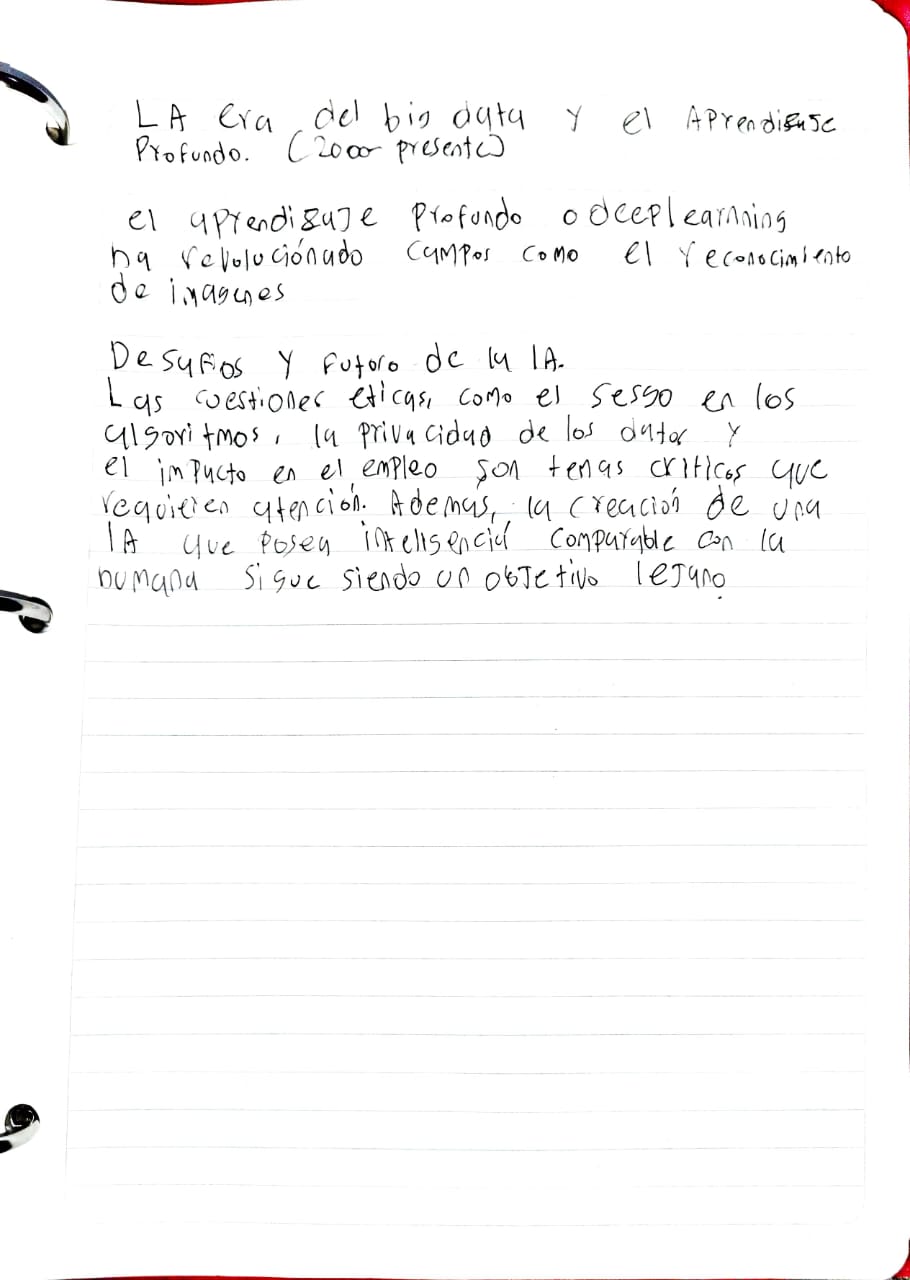 LA era del big data y el Aprendizaje
Profundo. (2000 presente)
el aprendizaje profundo o deeplearnning
ha revoluciónado campos como el reconocimiento
de imagenes
Desafios y futoro de la IA.
Las cuestiones eticas, como el sesgo en los
algoritmos, la privacidad de los datos y
el impacto en el empleo son temas criticos que
requieren atención. Ademas, la creación de una
IA que posea inteligencia comparable con la
humana sigue siendo un objetivo lejano.